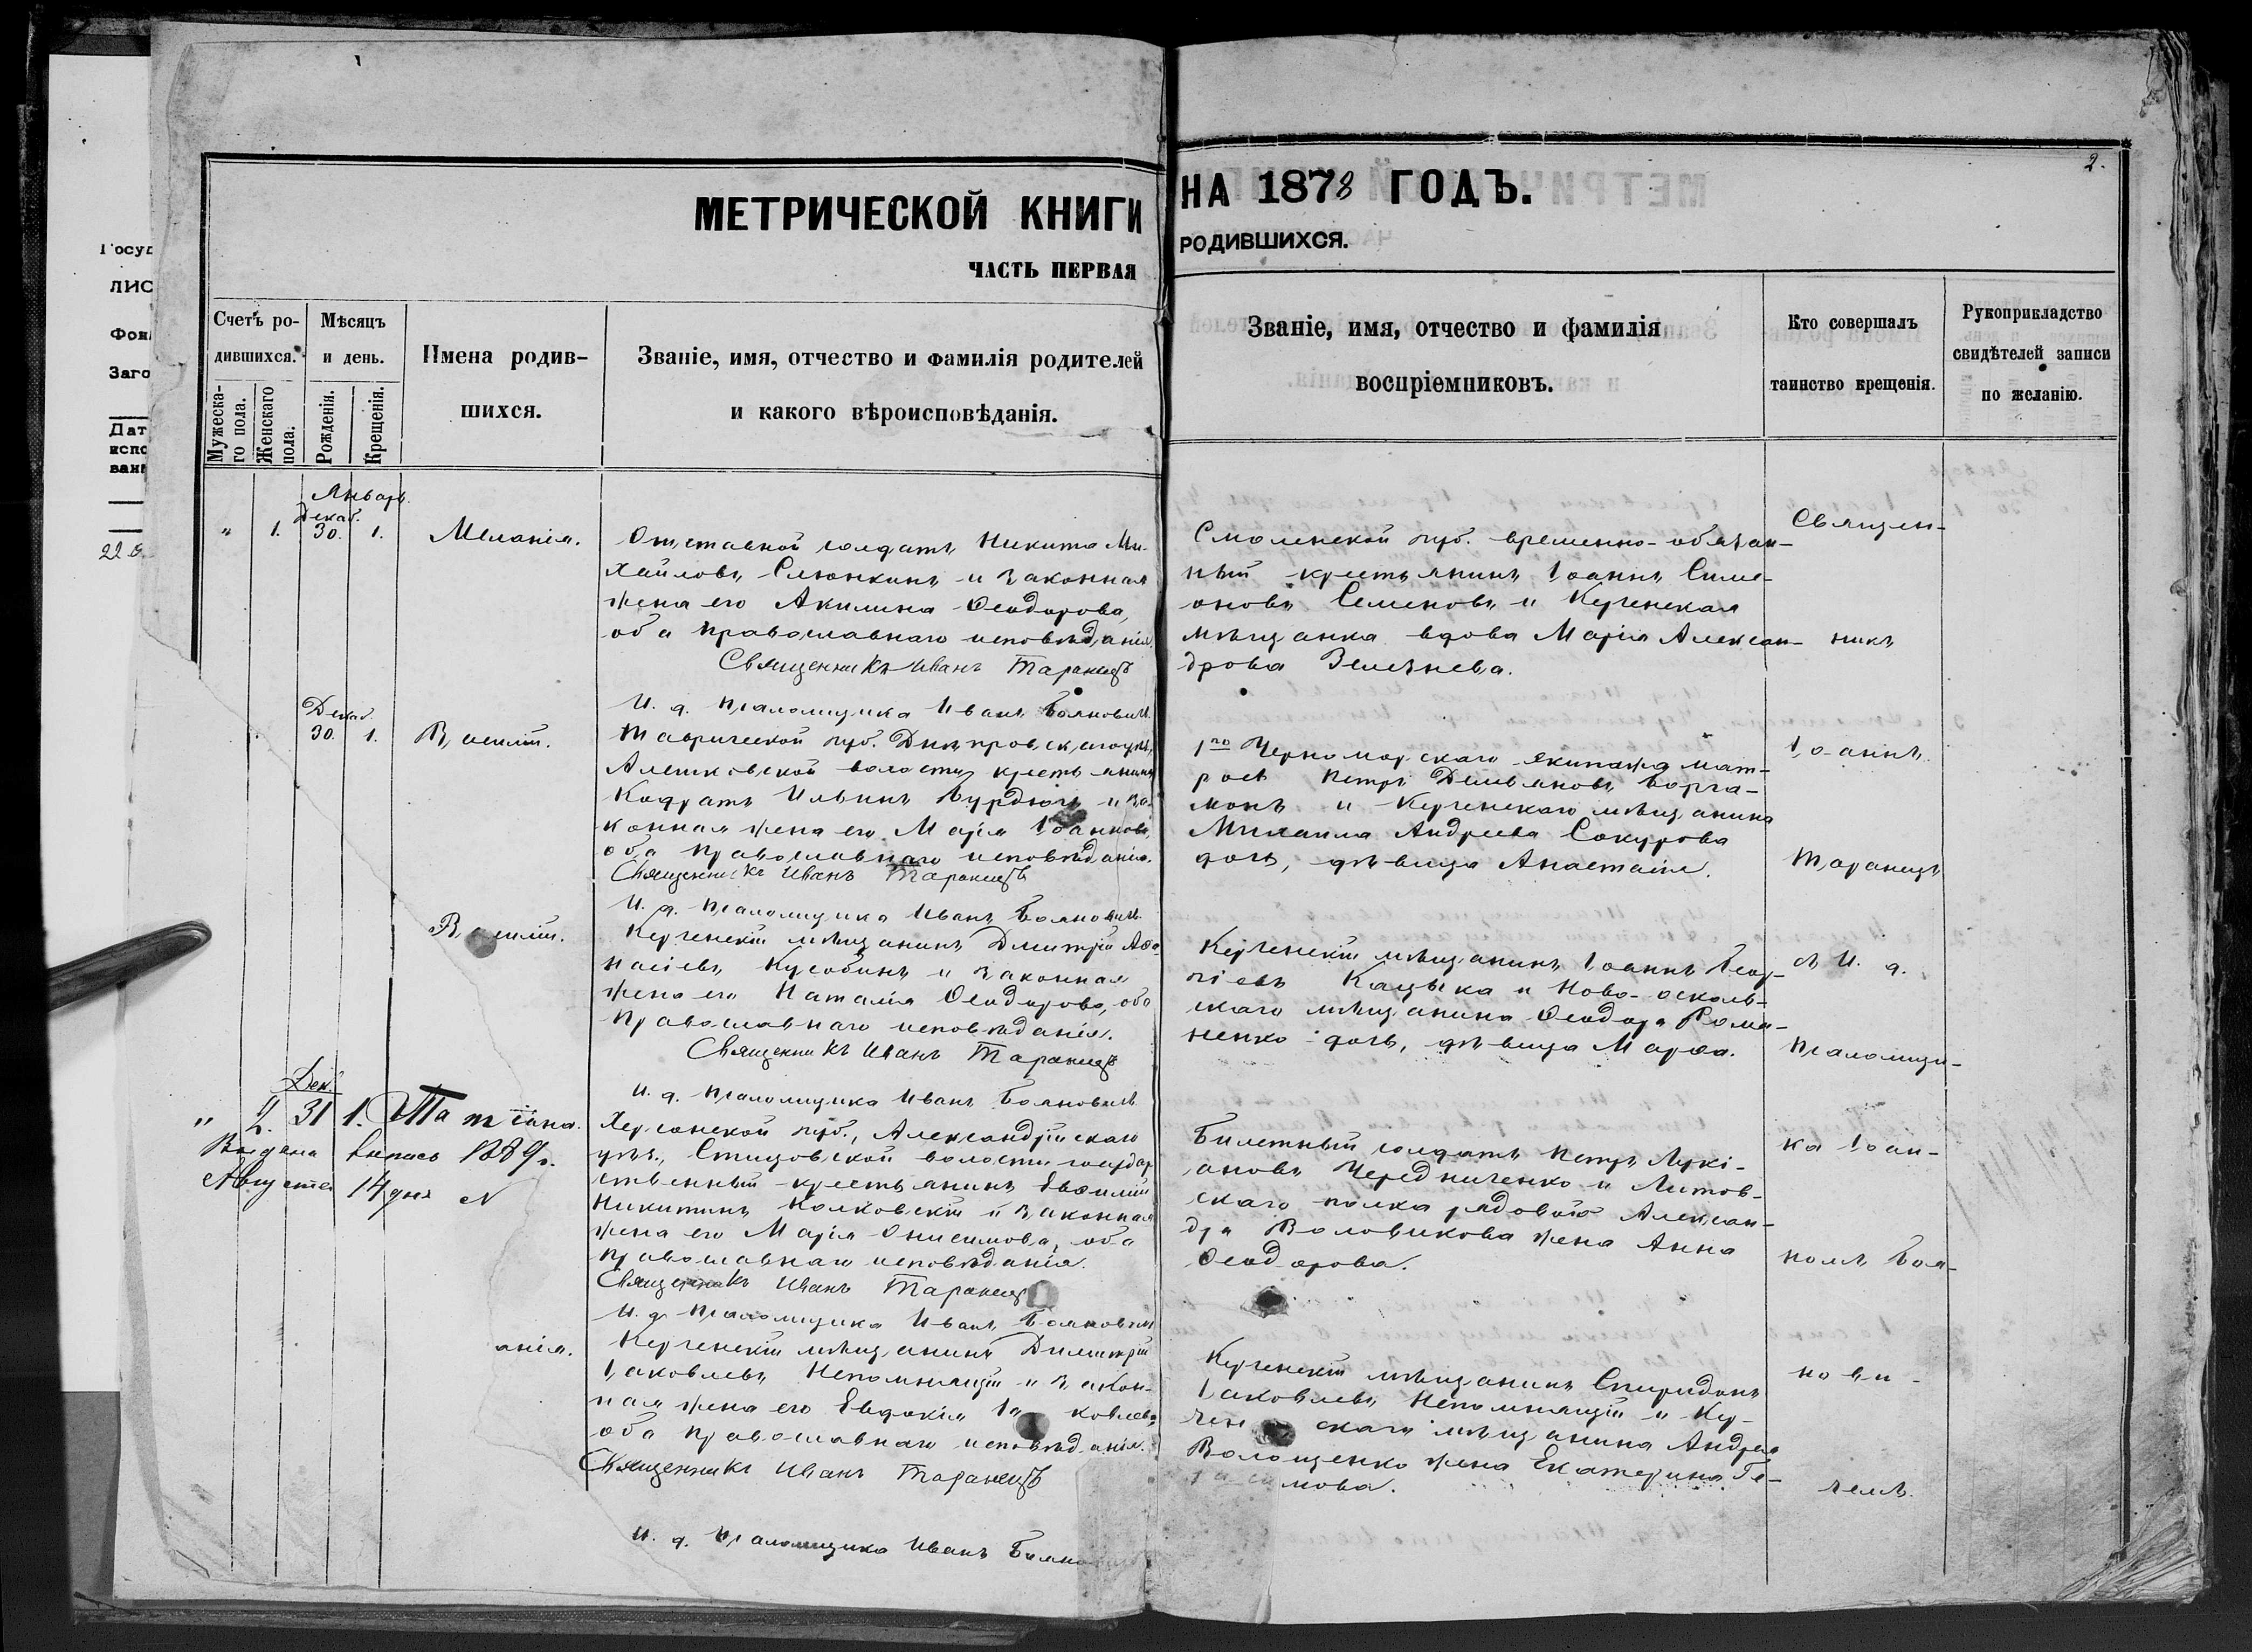 Госуд
ЛИС
Фон
Заго
Дат
испо
ван
2.
МЕТРИЧЕСКОЙ КНИГИ НА 1878 ГОДЪ.
ЧАСТЬ ПЕРВАЯ РОДИВШИХСЯ.
Счетъ ро-
дившихся.
Мужеска-
го пола.
Женскаго
пола.
Мѣсяцъ
и день.
Рожденія.
Крещенія.
Имена родив-
шихся.
Званіе, имя, отчество и фамилія родителей
и какого вѣроисповѣданія.
Званіе, имя, отчество и фамилія
воспріемниковъ.
Кто совершалъ
таинство крещенія.
Рукоприкладство
свидѣтелей записи
по желанію.
Январь.
Декаб.
" 1. 30. 1. Меланія.
Отставной солдатъ Никита Ми-
хайловъ Слюнкинъ и законная
жена его Акилина Ѳеодорова,
оба православнаго исповѣданія.
Священникъ Иванъ Таранецъ
И. д. псаломщика Иванъ Бояновичъ
Смоленской губ. временно-обязан-
ный крестьянинъ Іоаннъ Симе-
оновъ Семеновъ и Керченская
мѣщанка вдова Марія Алексан-
дрова Зелезнева.
Декаб.
30. 1. Василій.
Таврической губ. Днѣпровск. уѣзда,
Алешковской волости крестьянинъ
Кодратъ Ильинъ Бурдюгъ и за-
конная жена его Марія Іоаннова,
оба православнаго исповѣданія.
Священникъ Иванъ Таранецъ
И. д. псаломщика Иванъ Бояновичъ
1го Черноморскаго экипажа мат-
росъ Петръ Демьяновъ
и Керченскаго мѣщанина
Михаила Андреева Сокурова
дочь, дѣвица Анастасія.
Василій.
Керченскій мѣщанинъ Дмитрій Аѳа-
насіевъ Кусобинъ и законная
жена его Наталія Ѳеодорова, оба
православнаго исповѣданія.
Священникъ Иванъ Таранецъ
И. д. псаломщика Иванъ Бояновичъ
Керченскій мѣщанинъ Іоаннъ Геор-
гіевъ Кацыка и Ново-осколь-
скаго мѣщанина Ѳеодора Рома-
ненко дочь, дѣвица Марѳа.
Дек.
" 2. 31 1. Татіана.
Выдана выпись 1889 г.
Августа 14 дня N
Херсонской губ., Александрійскаго
уѣз., Стицовской волости государ
ственный крестьянинъ Евѳимій
Никитинъ Колковскій и законная
жена его Марія Онисимова, оба
православнаго исповѣданія.
Священникъ Иванъ Таранецъ
И. д. псаломщика Иванъ Бояновичъ
Билетный солдатъ Петръ Лукі-
ановъ Чередниченко и Литов-
скаго полка рядоваго Алексан-
дра Воловикова жена Анна
Ѳеодорова.
анія.
Керченскій мѣщанинъ Димитрій
Іаковлевъ Непомнящій и закон-
ная жена его Евдокія Іа ковлева,
оба православнаго исповѣданія.
Священникъ Иванъ Таранецъ
И. д. псаломщика Иванъ Бояно
Керченскій мѣщанинъ Спиридонъ
Іаковлевъ Непомнящій и Кер-
чен скаго мѣщанина Андрея
Волощенко жена Екатерина Ге-
мова.
Священ-
никъ
Іоаннъ
Таранецъ
съ И. д.
псаломщи-
ка Іоан-
номъ Боя-
нови-
чемъ.